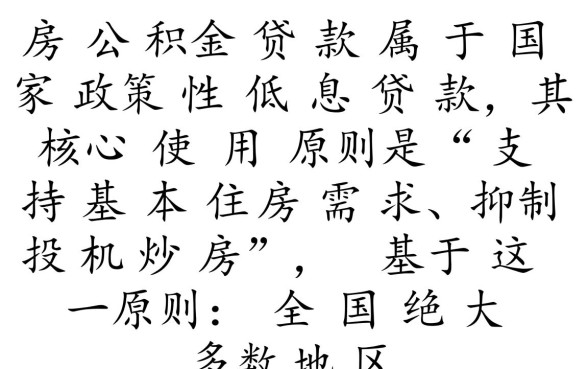 房公积金贷款属于国
家政策性低息贷款，其
核心使用原则是“支
持基本住房需求、抑制
投机炒房”， 基于这
一原则：全国绝大
多数地区